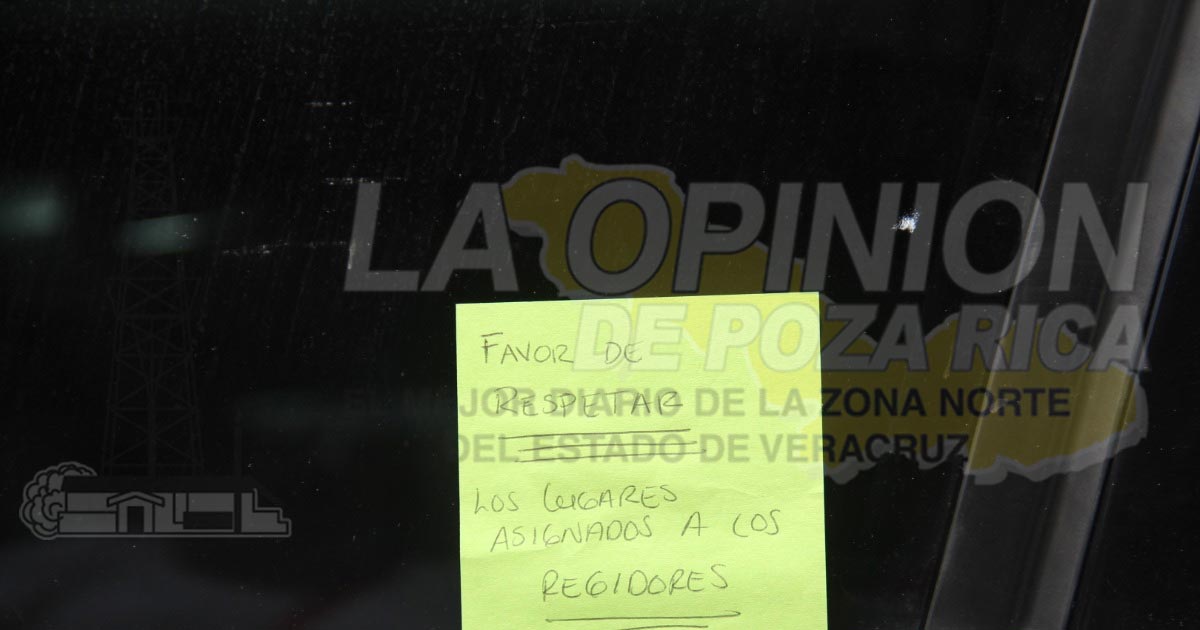 LA OPINION
DE POZA RICA
EL MEJOR DIARIO DE LA ZONA NORTE
DEL ESTADO DE VERACRUZ
FAVOR DE
RESPETAR
LOS LUGARES
ASIGNADOS A LOS
REGIDORES